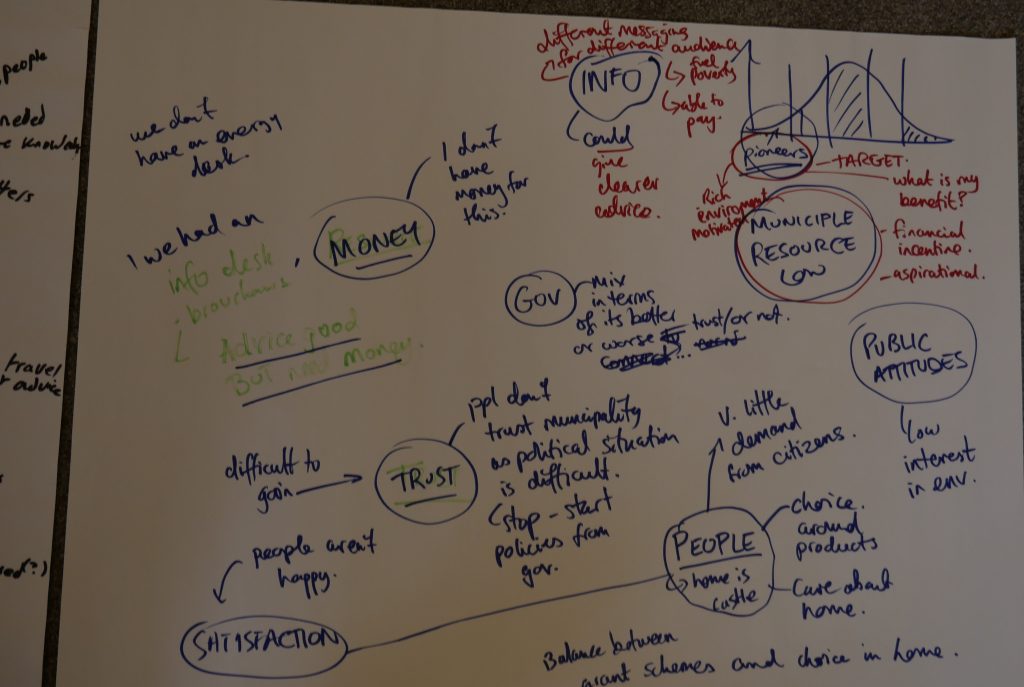 people
needed
travel
advice
we don't
have an energy
desk.
we had an
info desk
- brouchours
Advice good
But need money.
MONEY
I don't
have
money for
this.
different messaging
for different audience
INFO
fuel
poverty
able to
pay.
could
give
clearer
advice.
Pioneers
TARGET.
what is my
benefit?
Rich
enviroment
MUNICIPLE
RESOURCE
LOW
- financial
incentive.
- aspirational.
GOV
Mix
in terms
of its better
or worse
trust/or not.
PUBLIC
ATTITUDES
low
interest
in env.
difficult to
gain
TRUST
ppl don't
trust municipality
as political situation
is difficult.
stop - start
policies from
gov.
people aren't
happy.
SATISFACTION
V. little
demand
from citizens.
PEOPLE
home is
castle
choice.
around
products
Care about
home.
Balance between
grant schemes and choice in home.